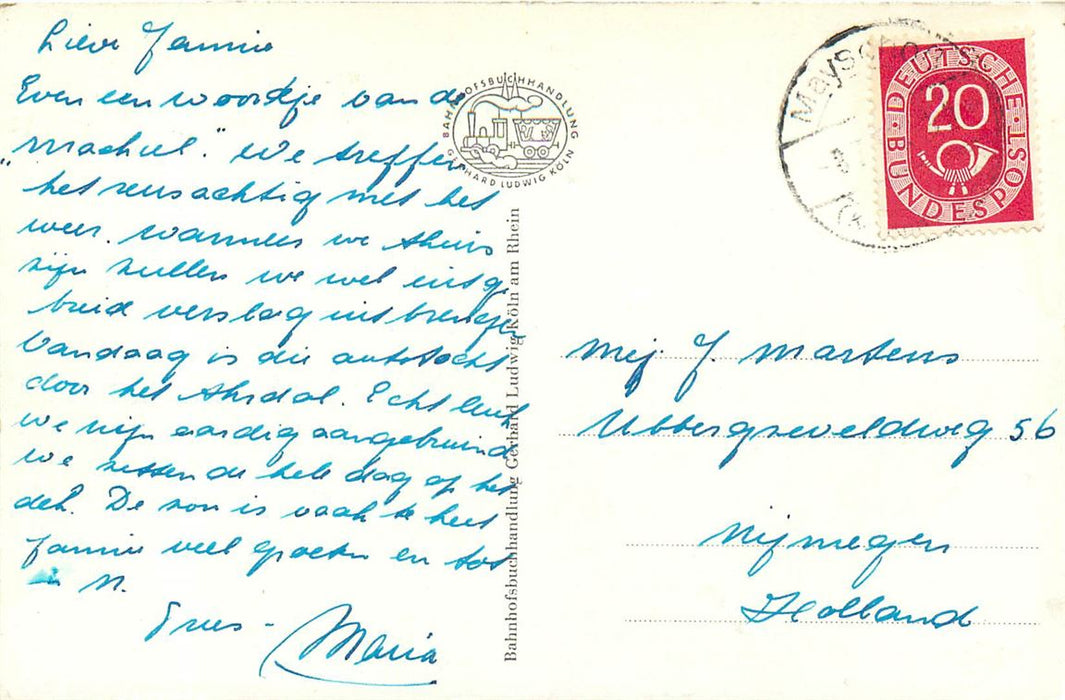 Lieve Jannie
Even een woordje van de
„Machiel." We treffen
het reusachtig met het
weer. Wanneer we thuis
zijn zullen we wel uitge
breid verslag uitbrengen
Vandaag is die autotocht
door het Ahrdal. Echt leuk
We zijn aardig aangebruind
We zitten de hele dag op het
dek. De zon is vaak te heet
Jannie veel groeten en tot
in N.
Groes-
Maria
BAHNHOFSBUCHHANDLUNG
GERHARD LUDWIG KÖLN
Bahnhofsbuchhandlung Gerhard Ludwig Köln am Rhein
Mayscho
DEUTSCHE
BUNDESPOST
20
Mej. J. Martens
Ubbergseveldweg 56
Nijmegen
Holland